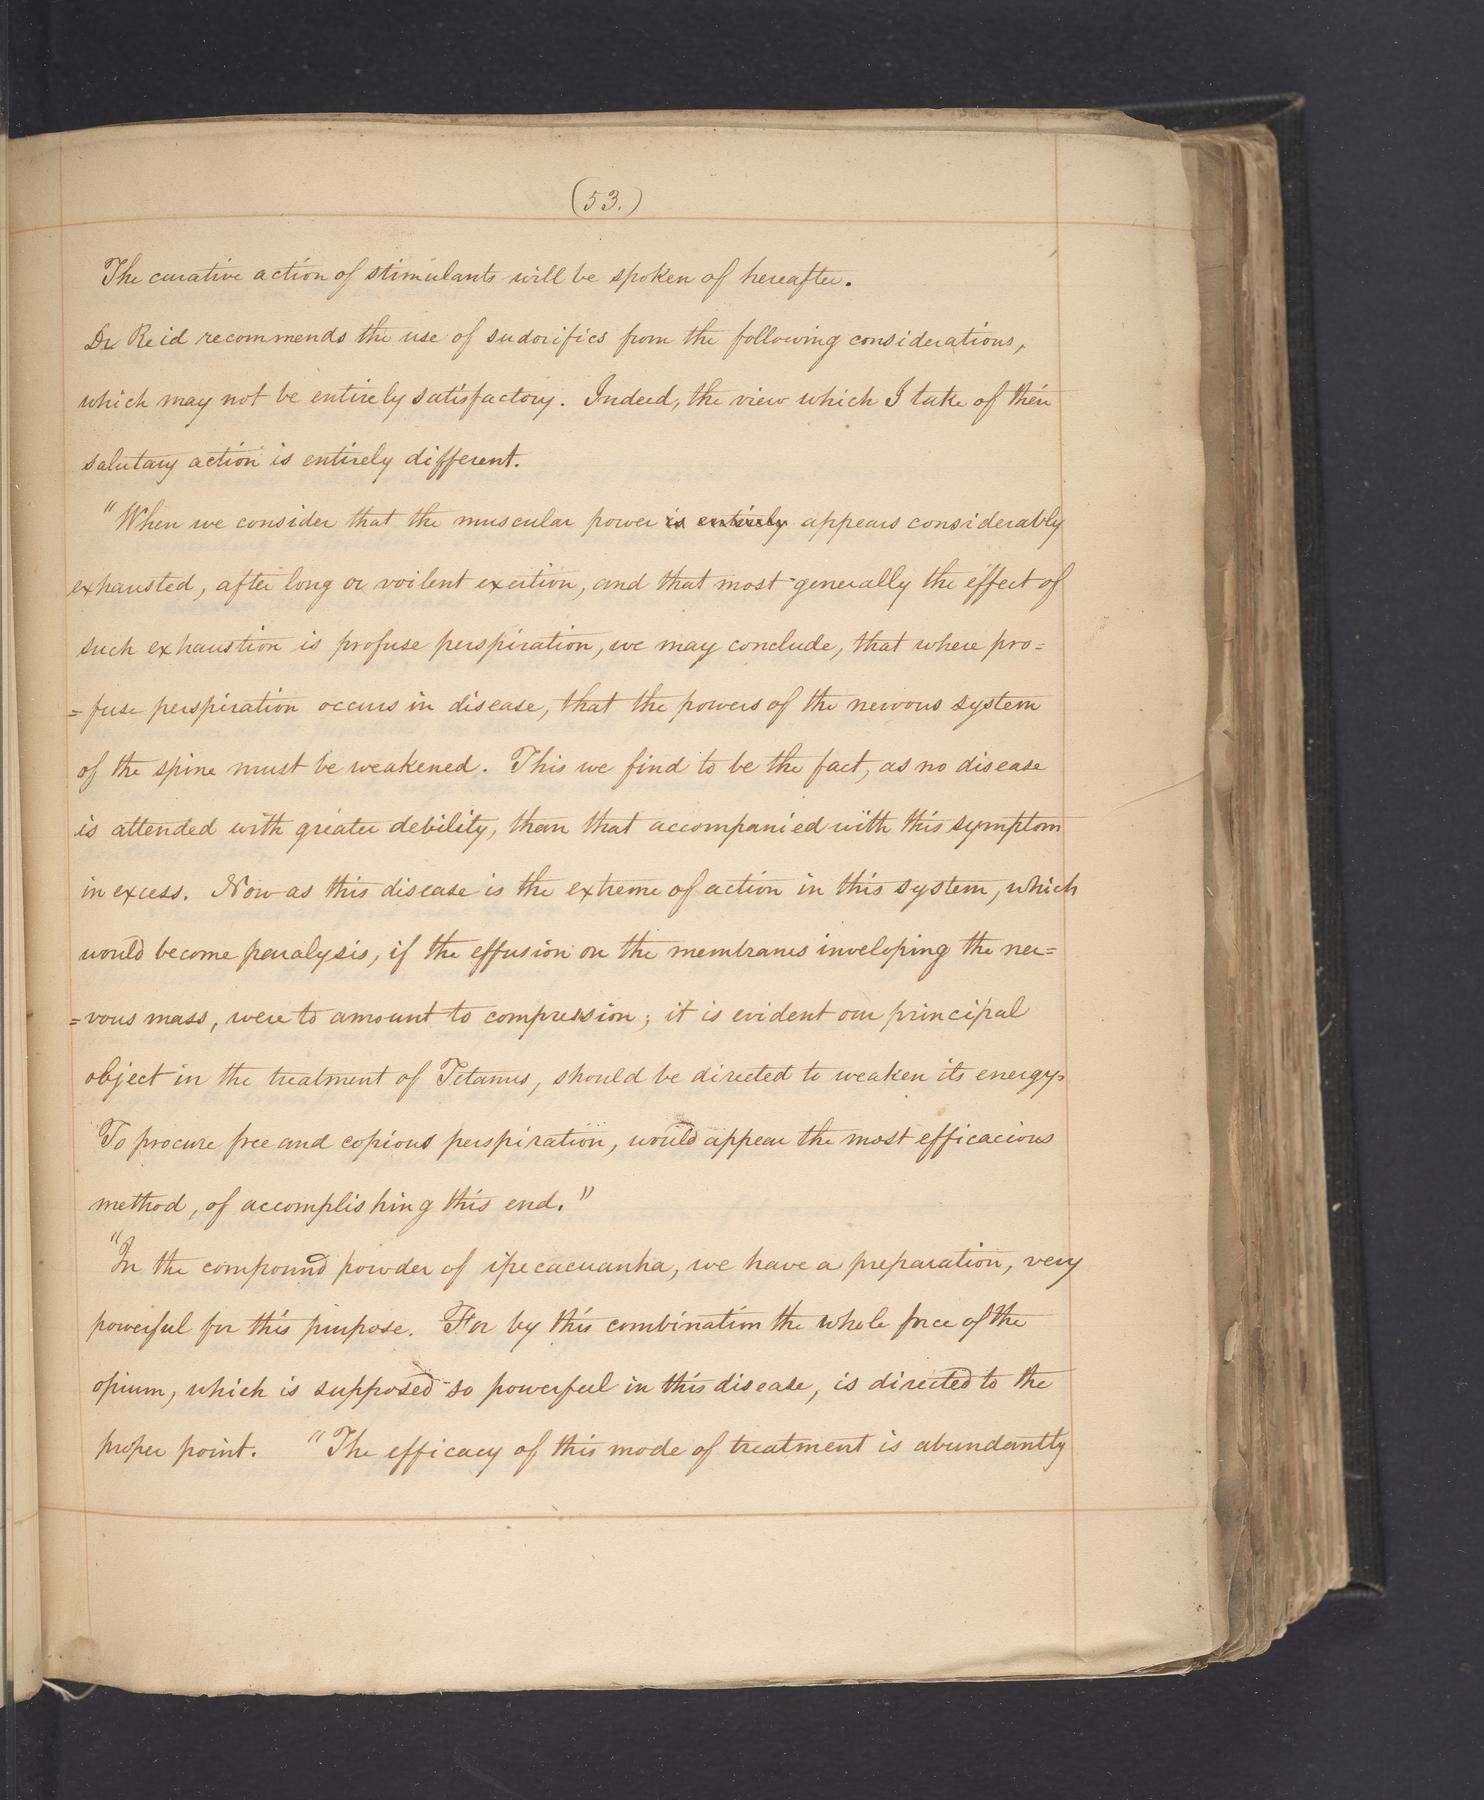 (53.)
The curative action of stimulants will be spoken of hereafter.
Dr Reid recommends the use of sudorifics from the following considerations,
which may not be entirely satisfactory. Indeed, the view which I take of their
salutary action is entirely different.
"When we consider that the muscular power is entirely appears considerably
exhausted, after long or voilent exertion, and that most generally the effect of
such exhaustion is profuse perspiration, we may conclude, that where pro=
=fuse perspiration occurs in disease, that the powers of the nervous system
of the spine must be weakened. This we find to be the fact, as no disease
is attended with greater debility, than that accompanied with this symptom
in excess. Now as this disease is the extreme of action in this system, which
would become paralysis, if the effusion on the membranes inveloping the ner=
=vous mass, were to amount to compression; it is evident our principal
object in the treatment of Tetanus, should be directed to weaken its energy.
To procure free and copious perspiration, would appear the most efficacious
method, of accomplishing this end."
"In the compound powder of ipecacuanha, we have a preparation, very
powerful for this purpose. For by this combination the whole force of the
opium, which is supposed so powerful in this disease, is directed to the
proper point. "The efficacy of this mode of treatment is abundantly